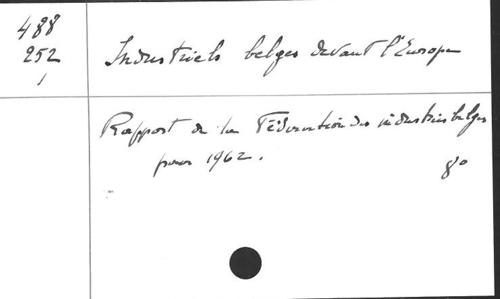 488
252
1
Industriels belges devant l'Europe
Rapport de la Fédération des industries belges
pour 1962.
8°